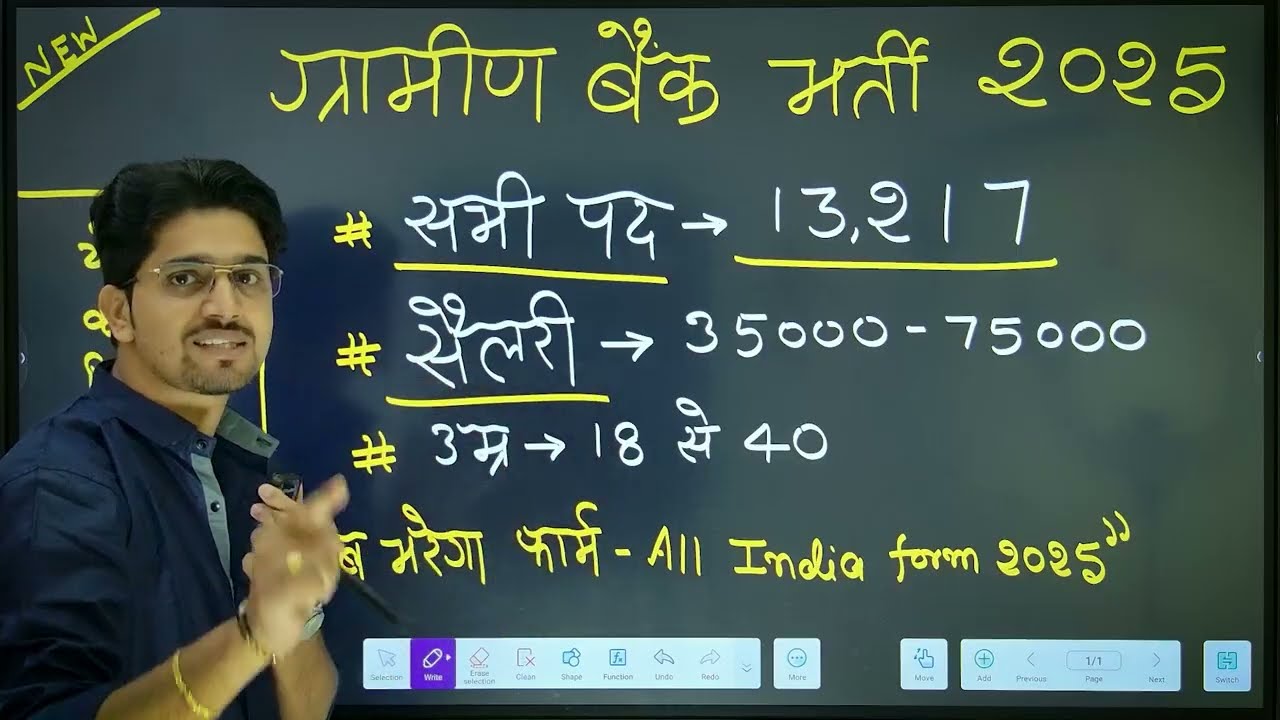 NEW
ग्रामीण बैंक भर्ती 2025
# सभी पद → 13,217
# सैलरी → 35000 - 75000
# उम्र → 18 से 40
भरेगा फार्म - All India form 2025”
Selection Write Erase selection Clean Shape Function Undo Redo More Move Add Previous 1/1 Page Next Switch